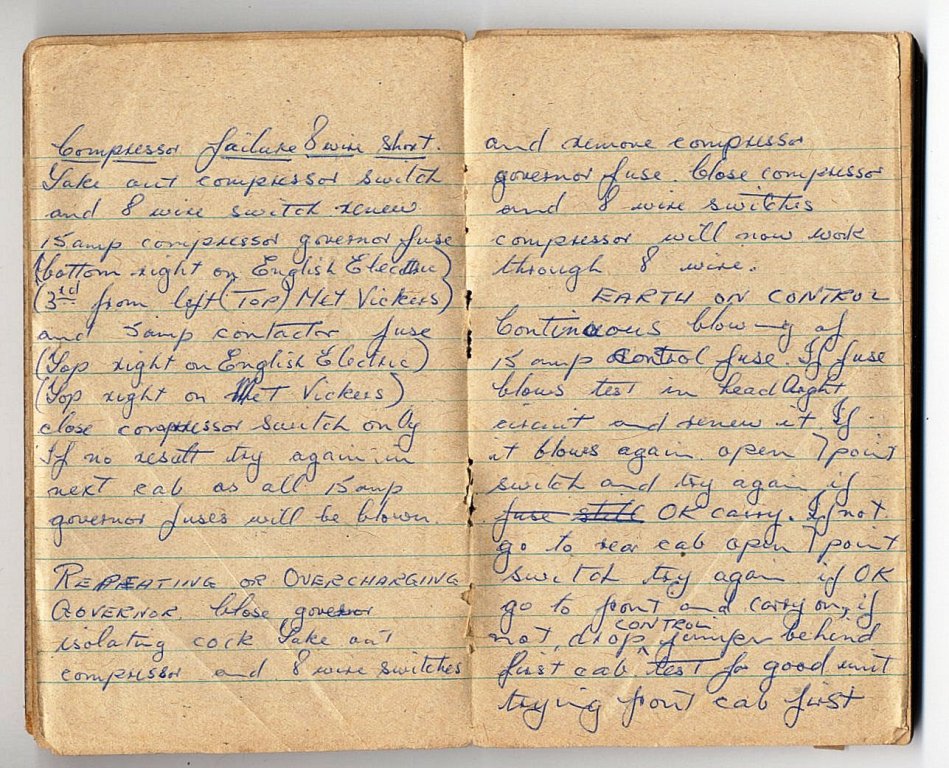 Compressor failure 8 wire short.
Take out compressor switch
and 8 wire switch renew
15 amp compressor governor fuse
(bottom right on English Electric)
(3rd from left (TOP) Met Vickers)
and 5 amp contactor fuse
(Top right on English Electric)
(Top right on Met Vickers)
close compressor switch only
If no result try again in
next cab as all 15 amp
governor fuses will be blown.
REPEATING OR OVERCHARGING
GOVERNOR. Close governor
isolating cock Take out
compressor and 8 wire switches
and remove compressor
governor fuse. Close compressor
and 8 wire switches
compressor will now work
through 8 wire.
EARTH ON CONTROL
Continuous blowing of
15 amp control fuse. If fuse
blows test in head light
circuit and renew it. If
it blows again open 7 point
switch and try again if
fuse still OK carry. If not
go to rear cab open 7 point
switch try again if OK
go to front and carry on, if
CONTROL
not, drop jumper behind
first cab test for good unit
trying front cab first